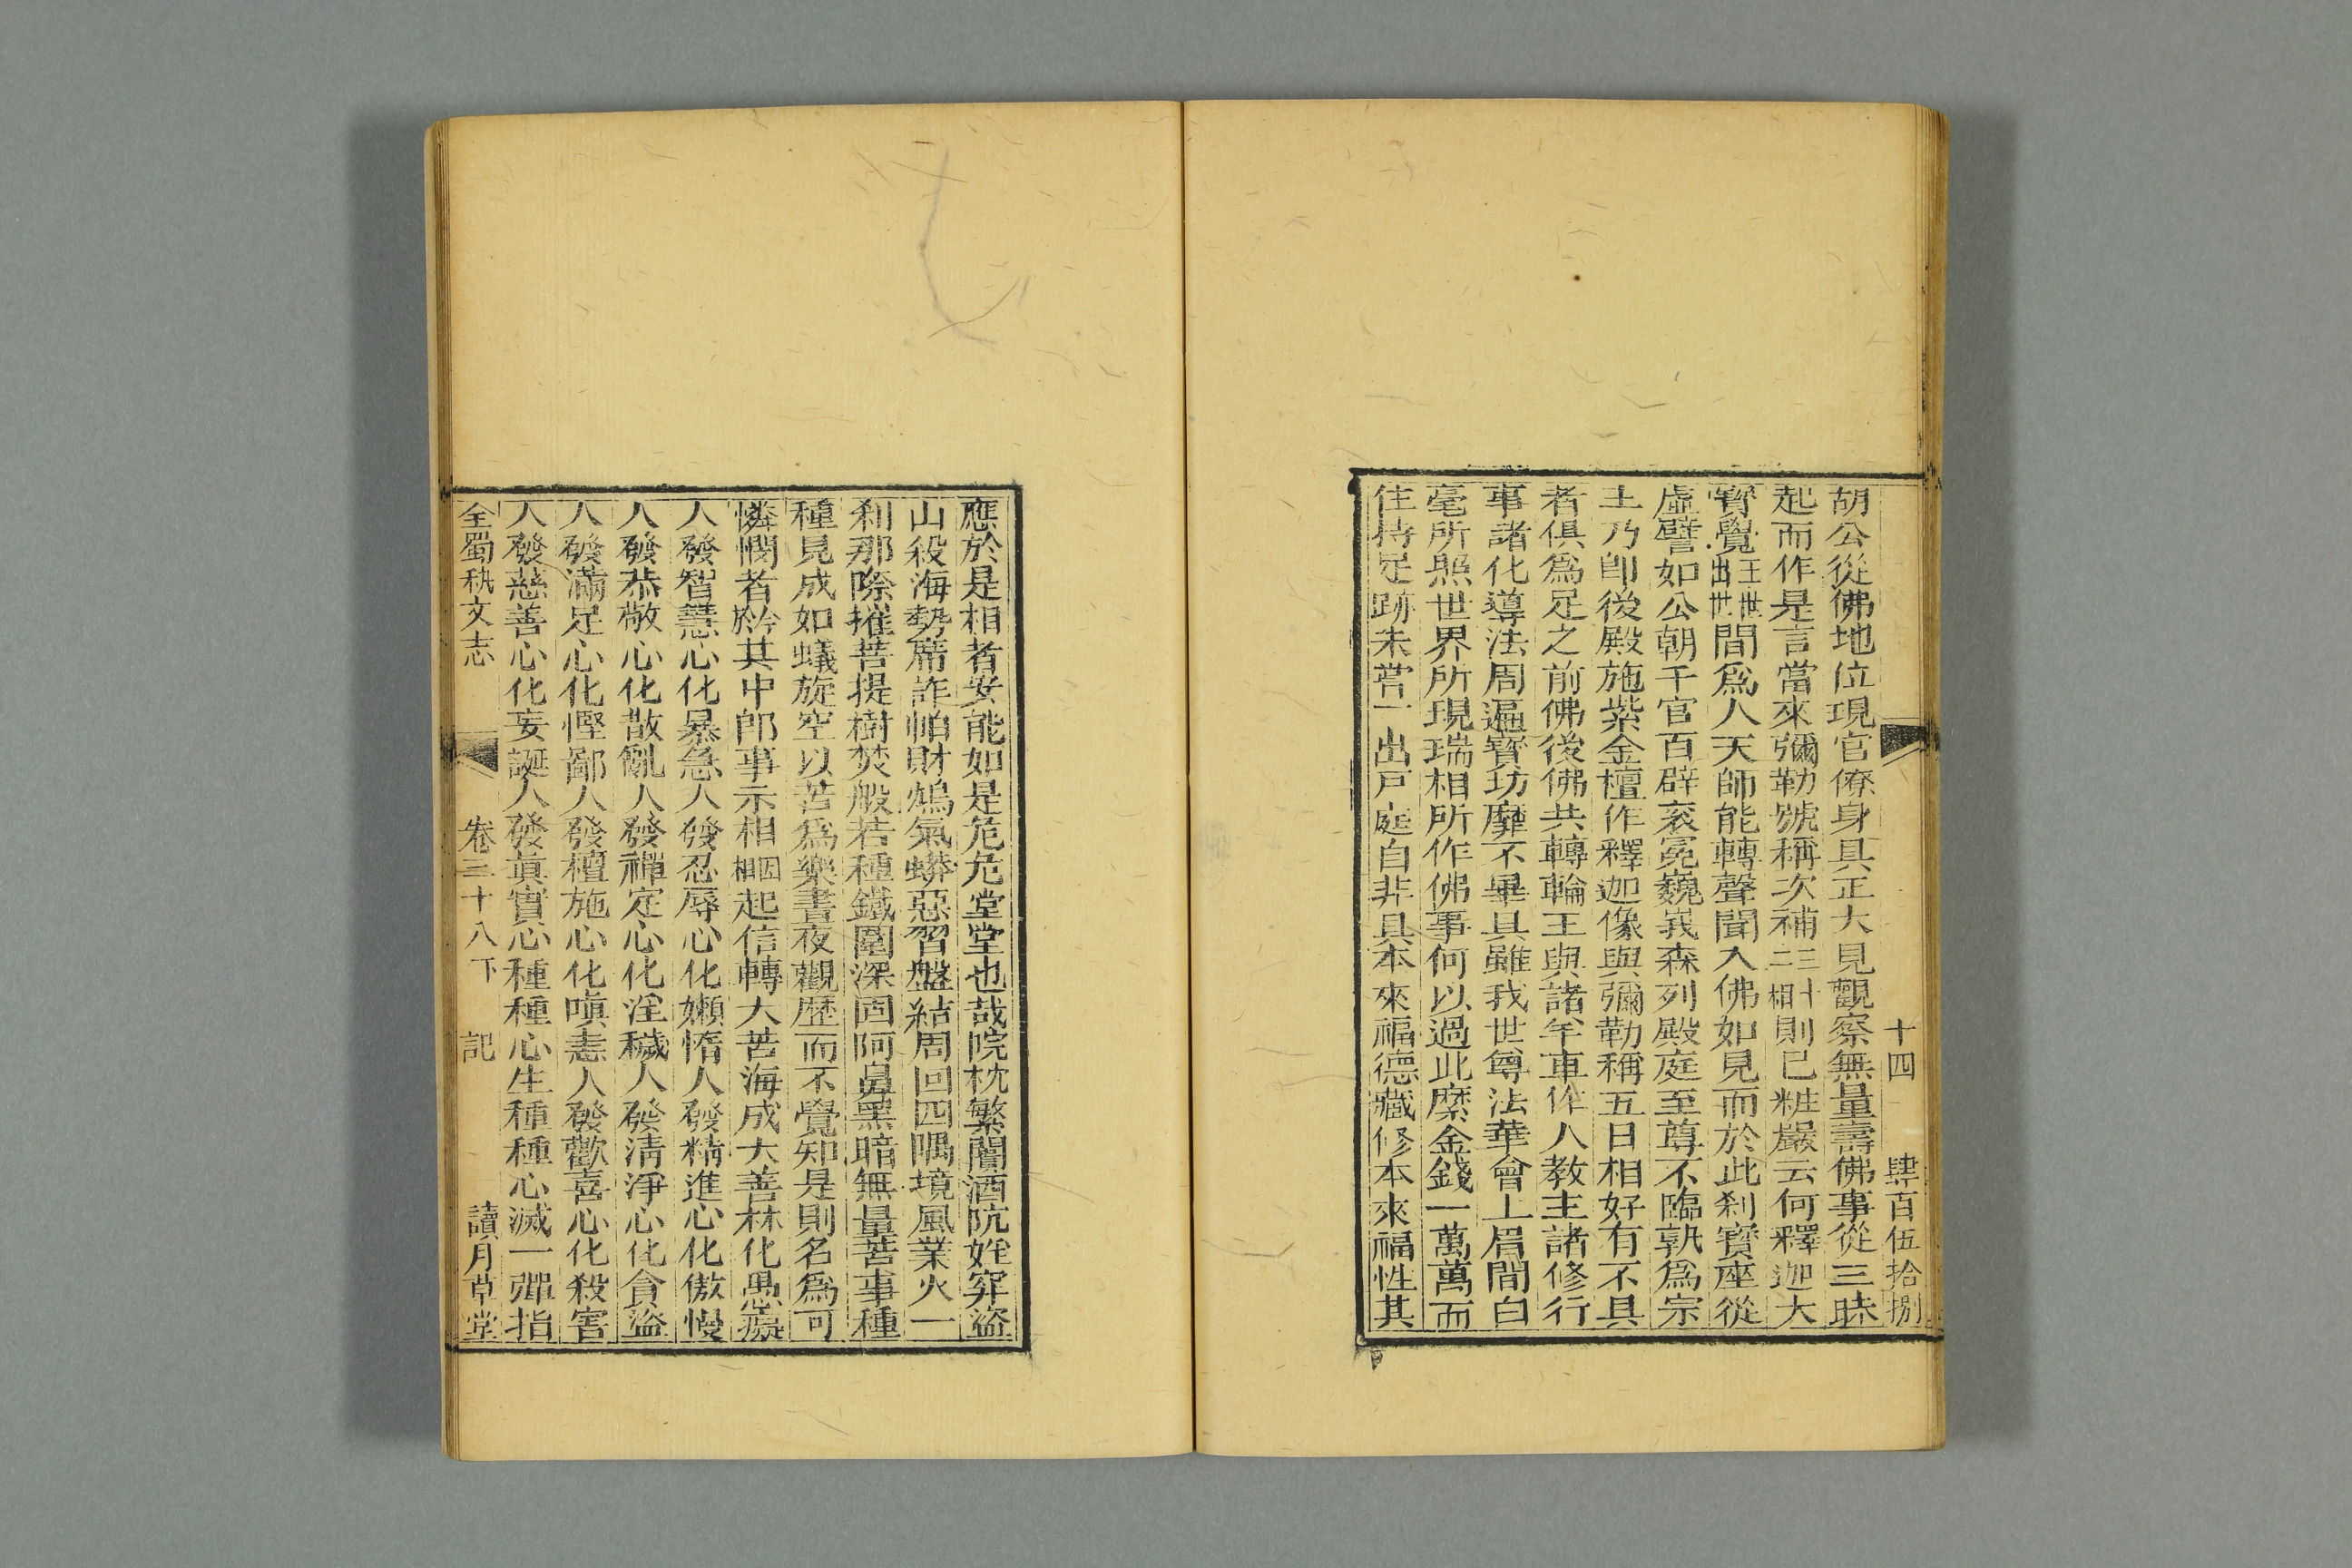 十四 肆百伍拾捌
胡公從佛地位現官僚身具正大見觀察無量壽佛事從三昧
起而作是言當來彌勒號稱次補三十二相則已粧嚴云何釋迦大
寶覺王世出世間爲人天師能轉聲聞入佛如見而於此刹寶座從
虛譬如公朝千官百辟衮冕巍峩森列殿庭至尊不臨孰爲宗
主乃卽後殿施紫金檀作釋迦像與彌勒稱五日相好有不具
者俱爲足之前佛後佛共轉輪王與諸羊車作人教主諸修行
事諸化導法周遍寶坊靡不畢具雖我世尊法華會上眉間白
毫所照世界所現瑞相所作佛事何以過此縻金錢一萬萬而
住持足跡未嘗一出戸庭自非具本來福德藏修本來福性其
應於是相者安能如是危危堂堂也哉院枕繁闤酒阬姪穽盜
山殺海勢席詐帕財鴆氣蟒惡習盤結周回四隅境風業火一
刹那際摧菩提樹焚般若種鐵圍深固阿鼻黑暗無量苦事種
種見成如蟻旋空以苦爲樂晝夜觀歷而不覺知是則名爲可
憐憫者於其中卽事示相因相起信轉大苦海成大善林化愚癡
人發智慧心化暴急人發忍辱心化嬾惰人發精進心化傲慢
人發恭敬心化散亂人發禪定心化淫穢人發清淨心化貪盜
人發滿足心化慳鄙人發檀施心化嗔恚人發歡喜心化殺害
人發慈善心化妄誕人發眞實心種種心生種種心滅一彈指
全蜀秇文志 卷三十八下 記 讀月草堂